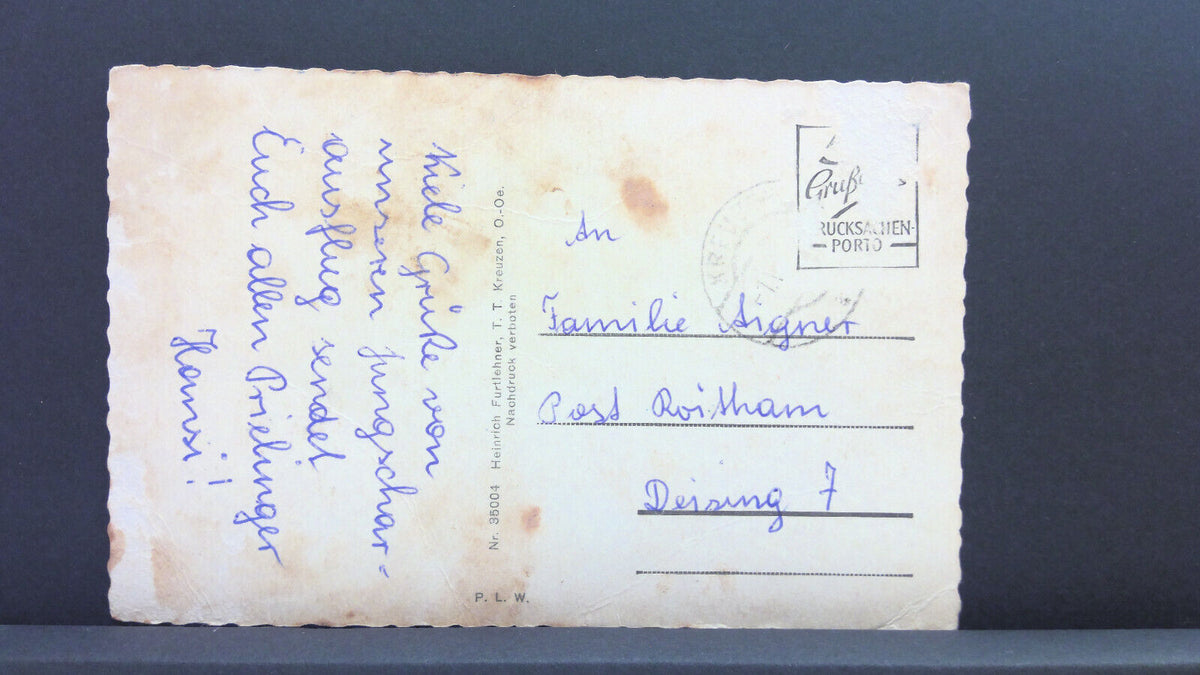 Viele Grüße von
unseren Jungschar-
ausflug sendet
Euch allen Prielinger
Hansi!
Nr. 35004 Heinrich Furtlehner, T. T. Kreuzen, O.-Oe.
Nachdruck verboten
P. L. W.
An
Familie Aigner
Post Roitham
Deising 7
RUCKSACHEN-
PORTO